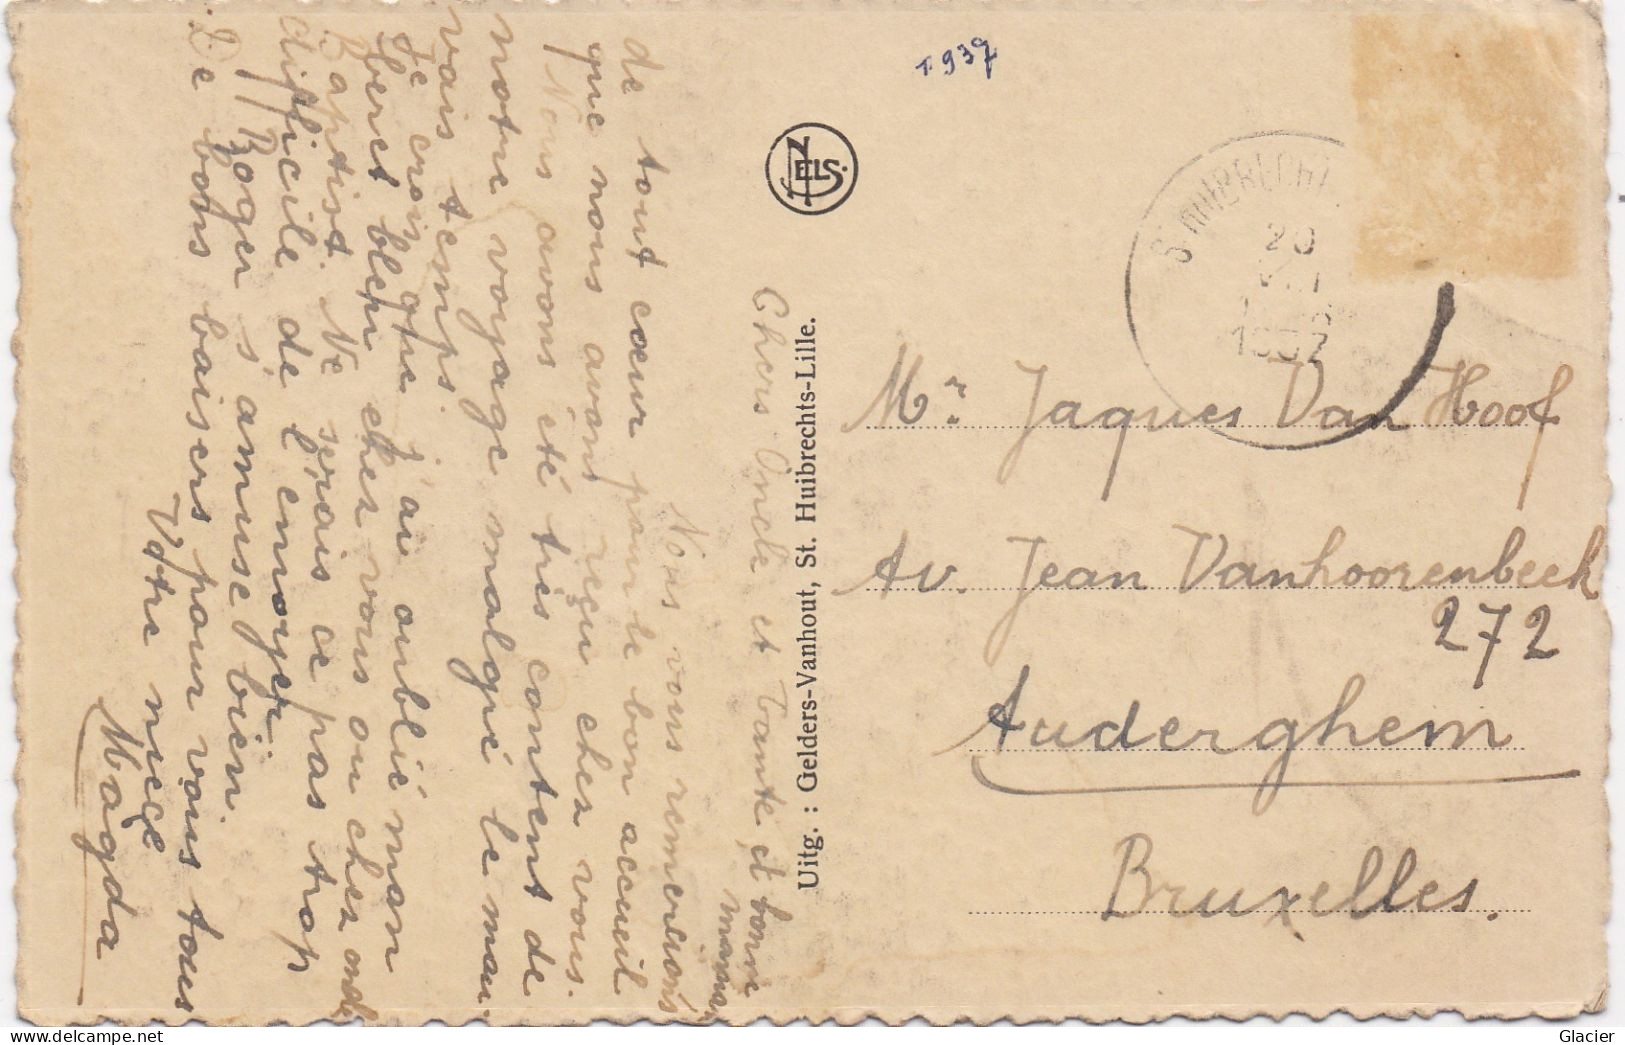 1937
NELS.
St HUIBRECHT
20
VIII
1937
Chers Oncle et Tante, et bonne
maman
Nous vous remercions
de tout cœur pour le bon accueil
que nous avons reçu chez vous.
Nous avons été très content de
notre voyage malgré le mau
vais temps.
Je crois que j'ai oublié mon
béret bleu chez vous ou chez oncle
Baptist. Ne serais ce pas trop
difficile de l'envoyer
Roger s'amuse bien.
De bons baisers pour vous tous
Votre nièce
Magda
Uitg. : Gelders-Vanhout, St. Huibrechts-Lille.
Mr. Jaques Van Hoof
Av. Jean Vanhoorenbeek
272
Auderghem
Bruxelles.
www.delcampe.net
Glacier